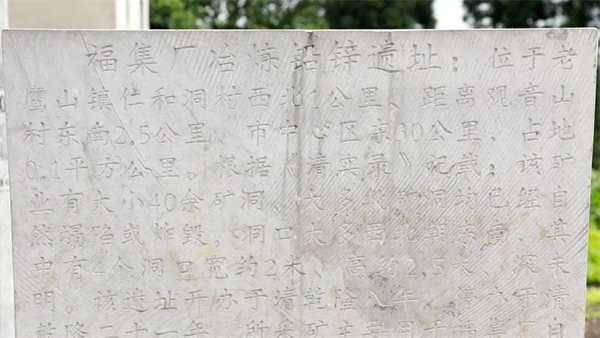 福集厂冶炼铅锌遗址：位于老
鹰山镇仁和洞村西北1公里、距离观音山
村东南2.5公里、市中心区东30公里，占地
0.1平方公里。根据《清实录》记载：该矿
业有大小40余矿洞、大多数矿洞均已经自
然塌陷或炸毁。洞口大多西北朝东南、其
中有4个洞口宽约2米、高约2.5米、深未
明。该遗址开办于清乾隆八年，停办于清
乾隆二十一年，所采矿主要用于